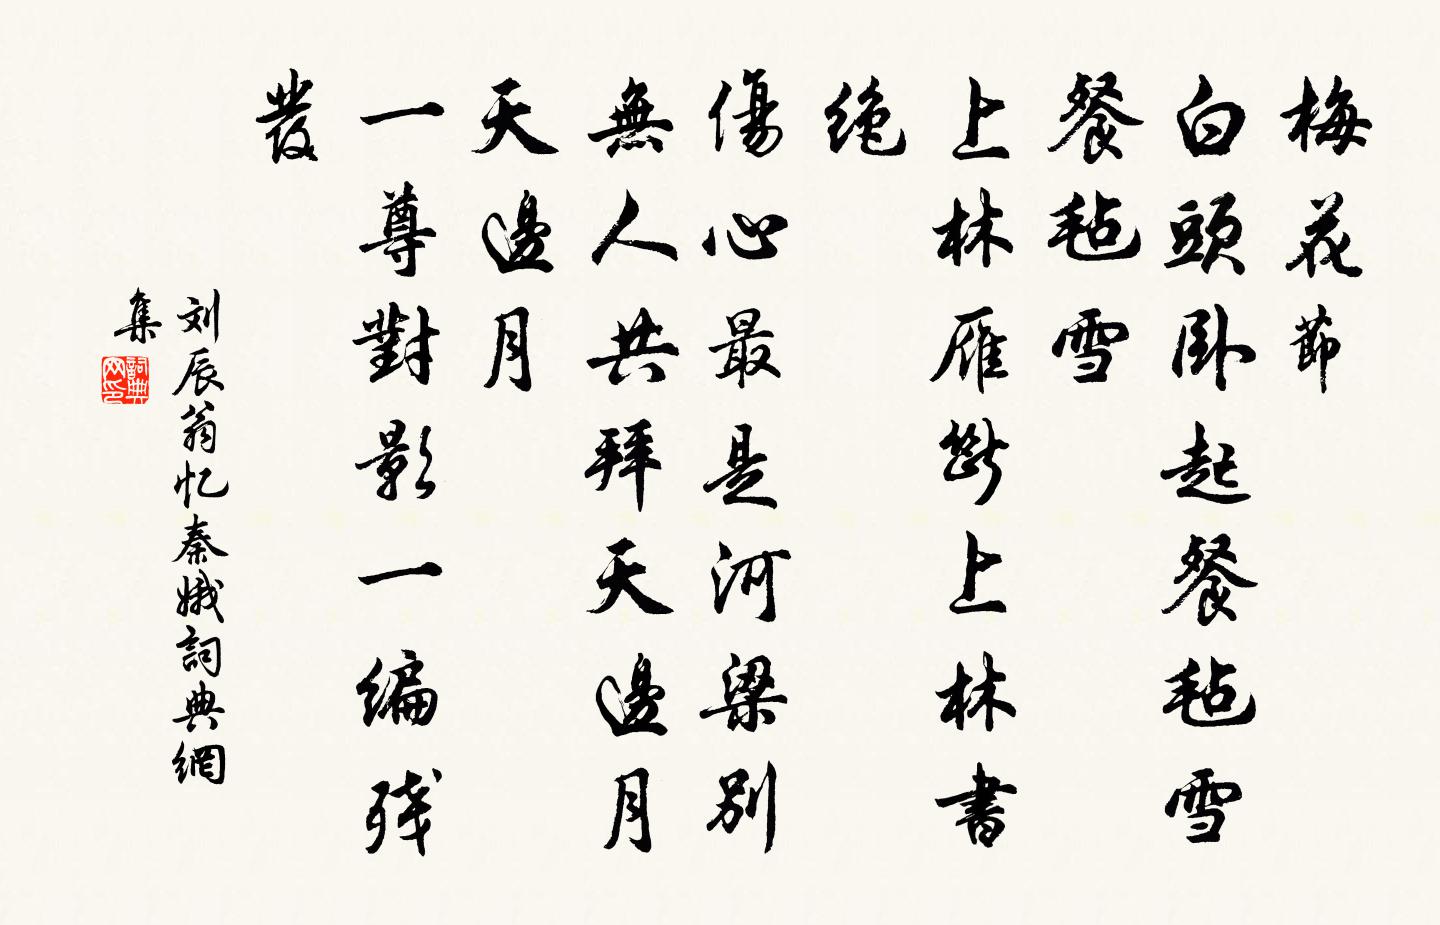 梅花節
白頭卧起餐毡雪
餐毡雪
上林雁断上林書
绝
傷心最是河梁别
無人共拜天邊月
天邊月
一尊對影一编残
發
刘辰翁忆秦娥詞典網
集
詞典网印